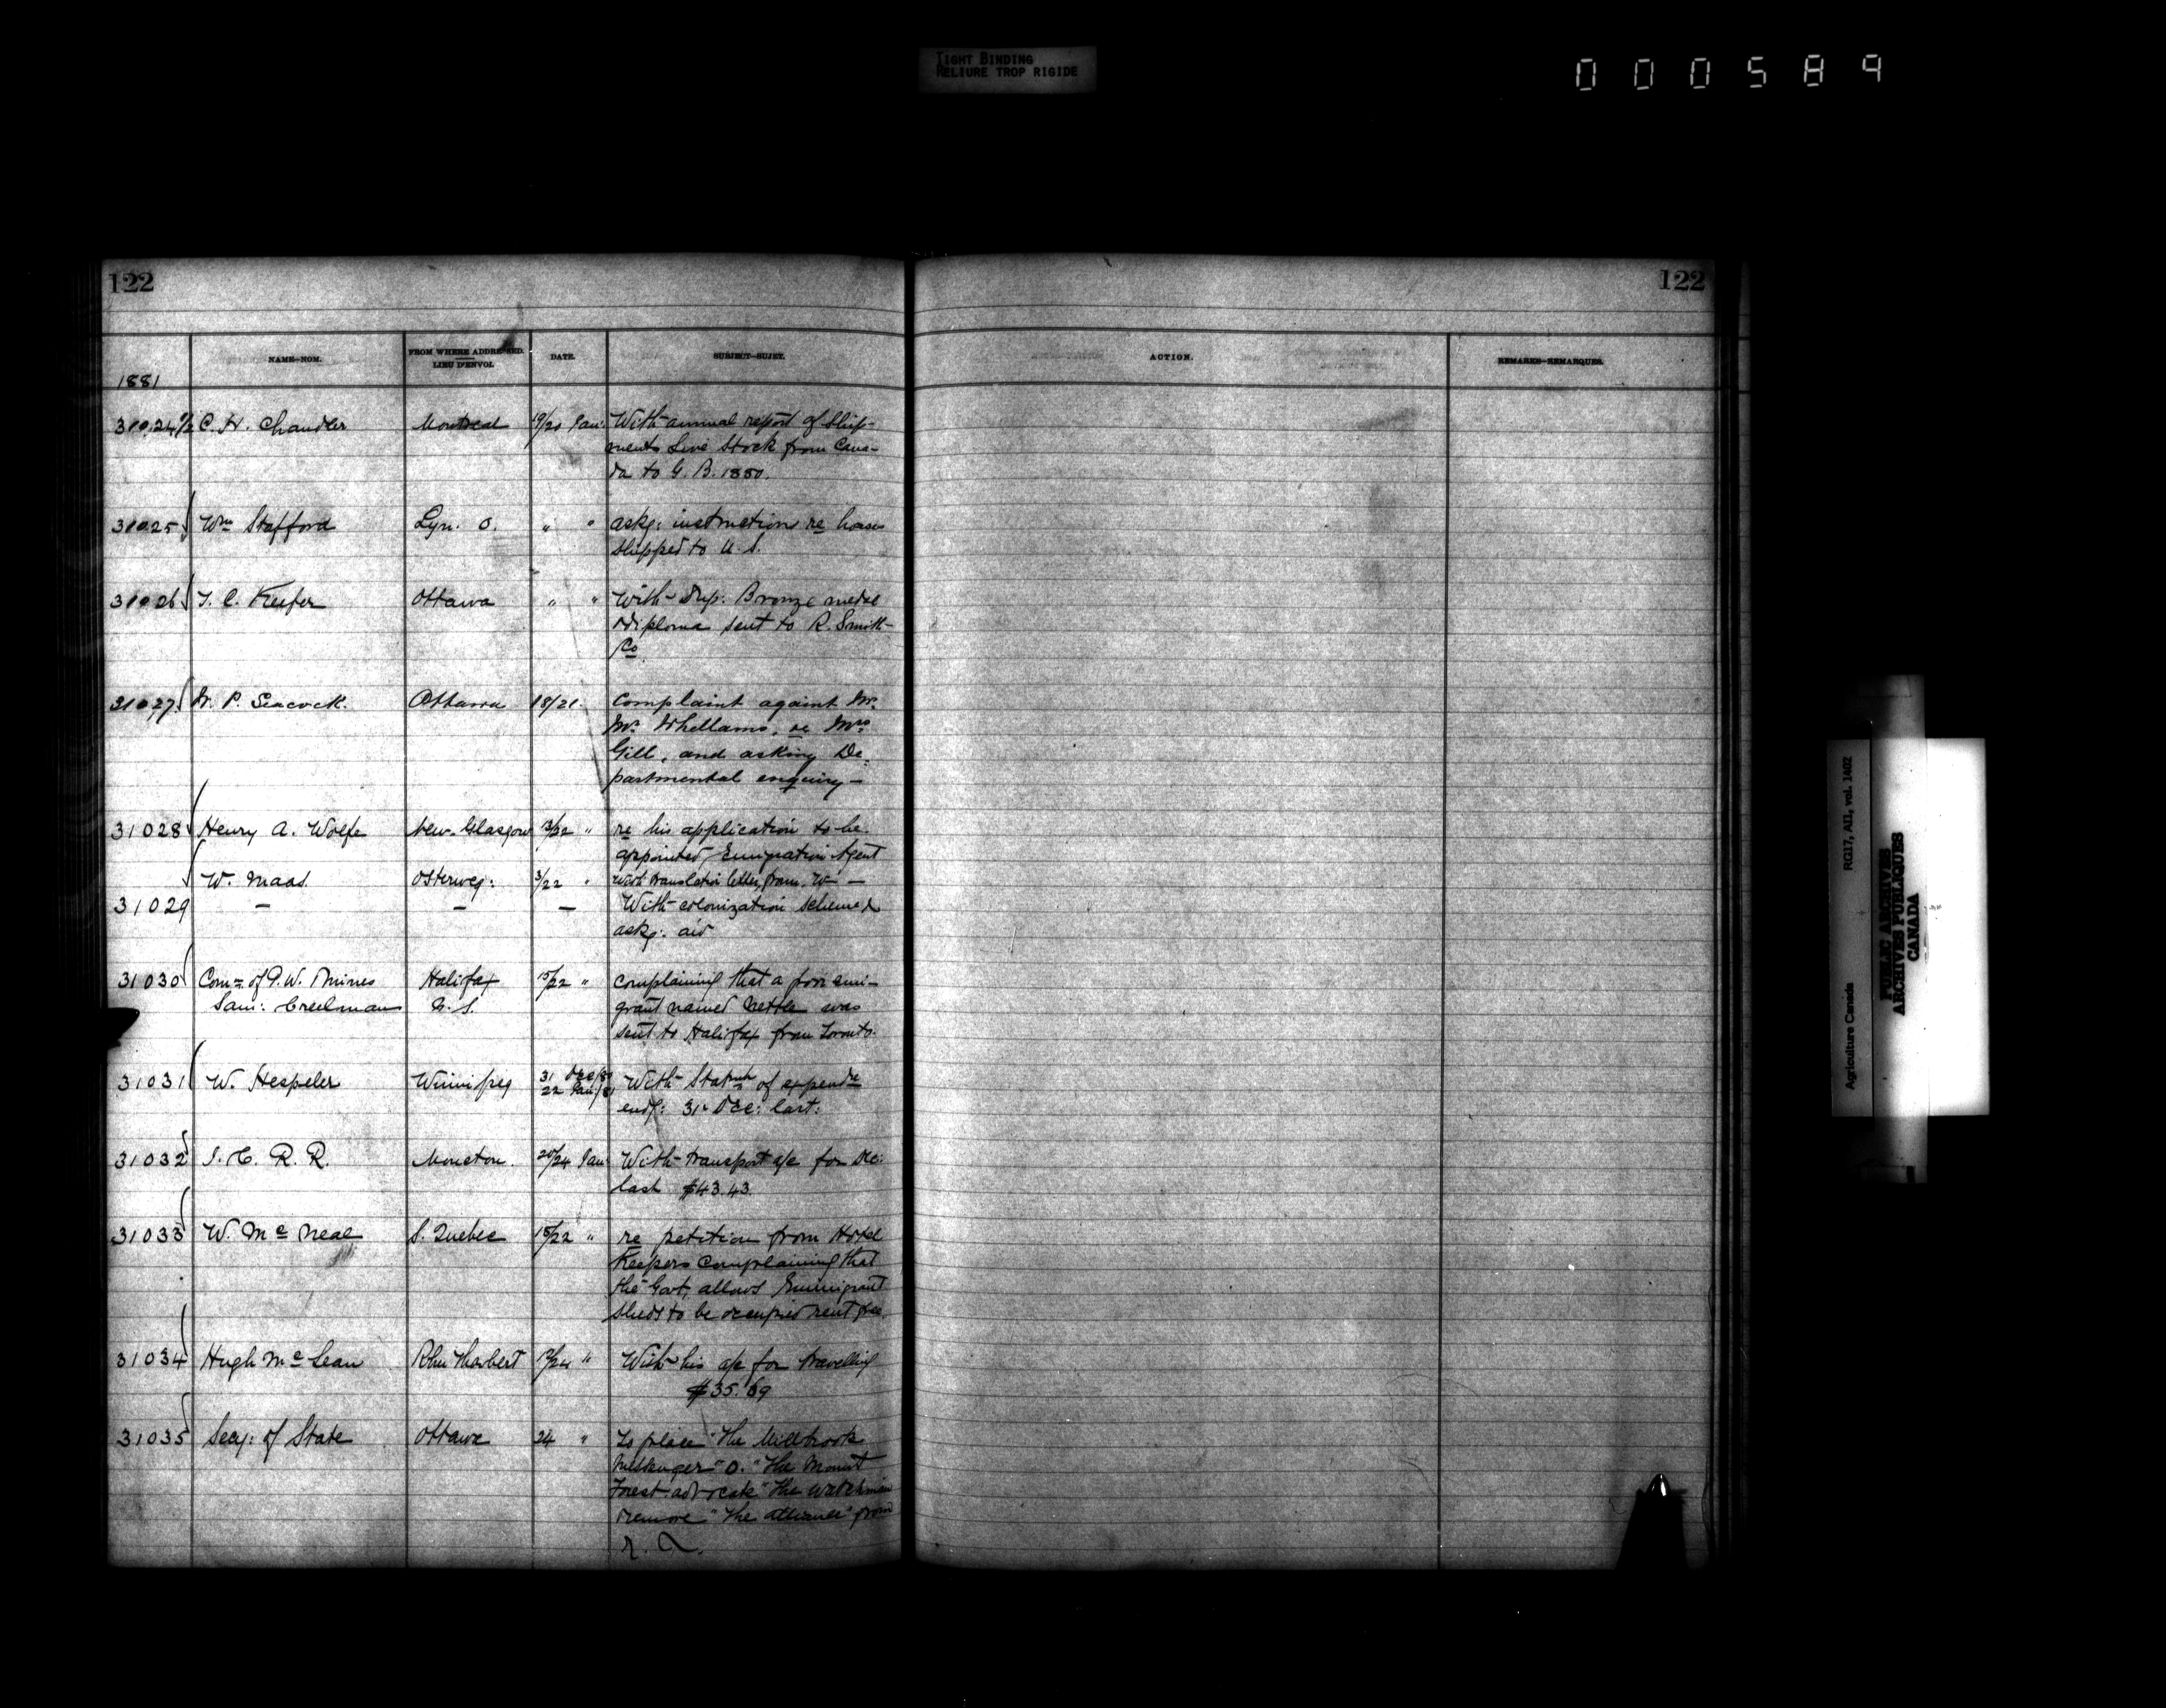 TIGHT BINDING
RELIURE TROP RIGIDE
000589
122
122
NAME—NOM.
FROM WHERE ADDRESSED.
LIEU D'ENVOI.
DATE.
SUBJECT—SUJET.
ACTION.
REMARKS—REMARQUES.
1881
31024 1/2 C. H. Chandler Montreal 19/20 Jan: With annual report of Ship-
ments Live Stock from Cana-
da to G. B. 1880.
31025 Wm Stafford Lyn. O. " " askg: instructions re horses
shipped to U. S.
31026 T. C. Keefer Ottawa " " With Dup. Bronze medal
diploma sent to R. Smith
Co
31027 W. P. Seacock. Ottawa 18/21. Complaint against Mr.
Wm Whellams, re Mrs
Gill, and asking De-
partmental enquiry—
31028 Henry A. Wolfe New-Glasgow 13/22 " re his application to be
appointed Emigration Agent
W. Maas. Osterweg: 3/22 " With translation letter, from. W —
31029 — — — With colonization scheme &
askg: aid
31030 Comr of P. W. & Mines Halifax 15/22 " Complaining that a poor emi-
Sam: Creelman N. S. grant named Nettle was
sent to Halifax from Toronto.
31031 W. Hespeler Winnipeg 31 Dec/80 With Statmt of expendre
22 Jan/81 endg: 31st Dec: last:
31032 I. C. R. R. Moncton. 20/24 Jan With transport a/c for Dec:
last $43.43.
31033 W. Mc Neal S. Quebec 18/22 " re petition from Hotel
Keepers complaining that
the Govt, allows Emmigrant
sheds to be occupied rent free.
31034 Hugh McLean " With his a/c for travelling
$35.69
31035 Secy: of State Ottawa 24 " To place "The Millbrook
Messenger" O. "The Mount
Forest advocate" The Watchman
remove "The Alliance" from
RG17, AII, vol. 1402
Agriculture Canada
PUBLIC ARCHIVES
ARCHIVES PUBLIQUES
CANADA